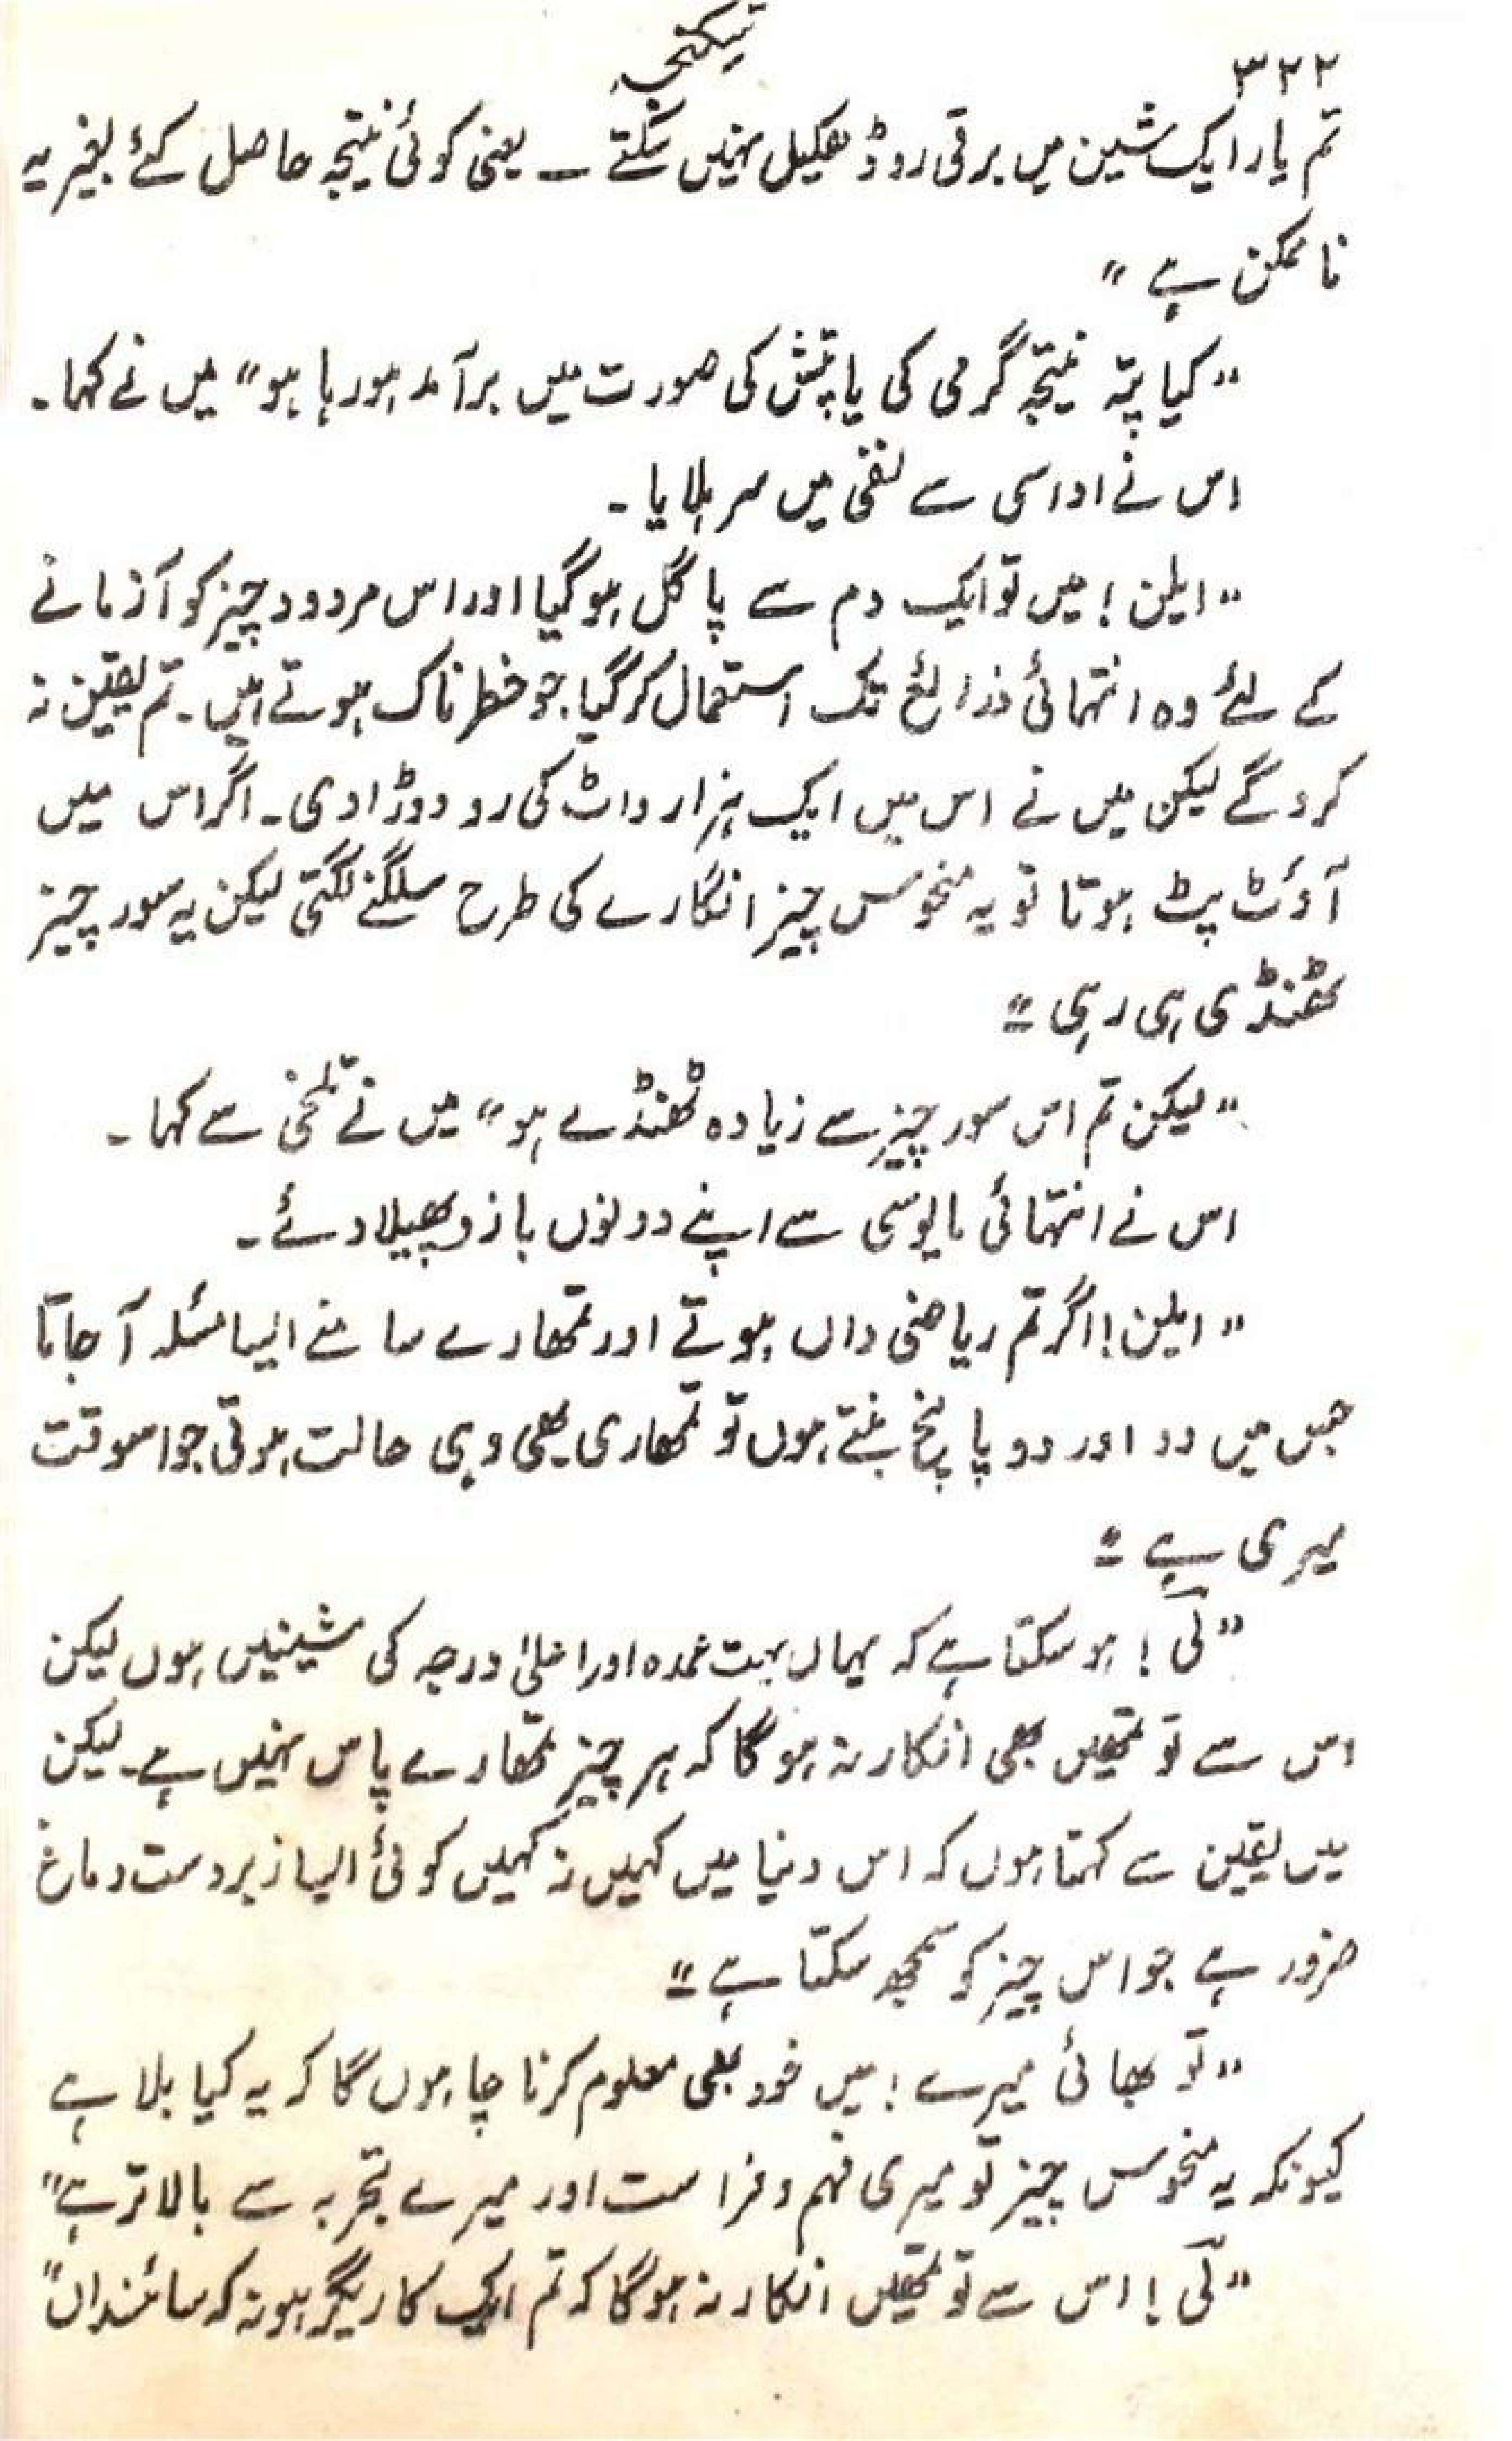 شکنجہ
۳۲۲
تم یار ایک مشین میں برقی رو ڈھکیل نہیں سکتے ـ یعنی کوئی نتیجہ حاصل کئے بغیر یہ
ناممکن ہے "
" کیا پتہ نتیجہ گرمی کی یا تپش کی صورت میں برآمد ہو رہا ہو " میں نے کہا۔
اس نے اداسی سے نفی میں سر ہلایا ۔
" ایلن ! میں تو ایک دم سے پاگل ہو گیا اور اس مردود چیز کو آزمانے
کے لئے وہ انتہائی ذرائع تک استعمال کر گیا جو خطرناک ہوتے ہیں۔ تم یقین نہ
کرو گے لیکن میں نے اس میں ایک ہزار واٹ کی رو دوڑا دی۔ اگر اس میں
آؤٹ پٹ ہوتا تو یہ منحوس چیز انگارے کی طرح سلگنے لگتی لیکن یہ سور چیز
ٹھنڈی ہی رہی "
" لیکن تم اس سور چیز سے زیادہ ٹھنڈے ہو " میں نے تلخی سے کہا ۔
اس نے انتہائی مایوسی سے اپنے دونوں بازو پھیلا دئے ۔
" ایلن ! اگر تم ریاضی داں ہوتے اور تمھارے سامنے ایسا مسئلہ آ جاتا
جس میں دو اور دو پانچ بنتے ہوں تو تمھاری بھی وہی حالت ہوتی جو اسوقت
میری ہے "
" لَی ! ہو سکتا ہے کہ یہاں بہت عمدہ اور اعلیٰ درجہ کی مشینیں ہوں لیکن
اس سے تو تمھیں بھی انکار نہ ہو گا کہ ہر چیز تمھارے پاس نہیں ہے۔ لیکن
میں یقین سے کہتا ہوں کہ اس دنیا میں کہیں نہ کہیں کوئی ایسا زبردست دماغ
ضرور ہے جو اس چیز کو سمجھ سکتا ہے "
" تو بھائی میرے ! میں خود بھی معلوم کرنا چاہوں گا کہ یہ کیا بلا ہے
کیونکہ یہ منحوس چیز تو میری فہم و فراست اور میرے تجربہ سے بالاتر ہے "
" لَی ! اس سے تو تمھیں انکار نہ ہو گا کہ تم ایک کاریگر ہو نہ کہ سائنسداں "